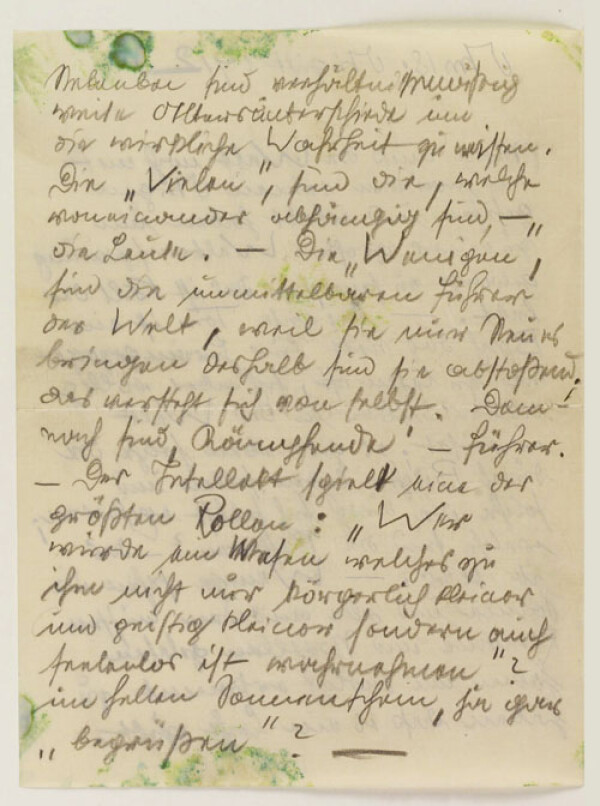 Nebenbei sind verhältnismässig
weite Altersunterschiede um
die wirkliche Wahrheit zu wissen.
Die „Vielen“, sind die, welche
voneinander abhängig sind, – „
die Leute. – Die „Wenigen“,
sind die unmittelbaren Führer
der Welt, weil sie nur Neues
bringen deshalb sind sie abstoßend,
das versteht sich von selbst. Dem-
nach sind Kämpfende! – Führer.
– Der Intellekt spielt eine der
größten Rollen: „Wer
würde ein Wesen welches zu
ihm nicht nur körperlich kleiner
und geistig kleiner sondern auch
seelenlos ist wahrnehmen“?
im hellen Sonnenschein, ja gar
„begrüßen“?